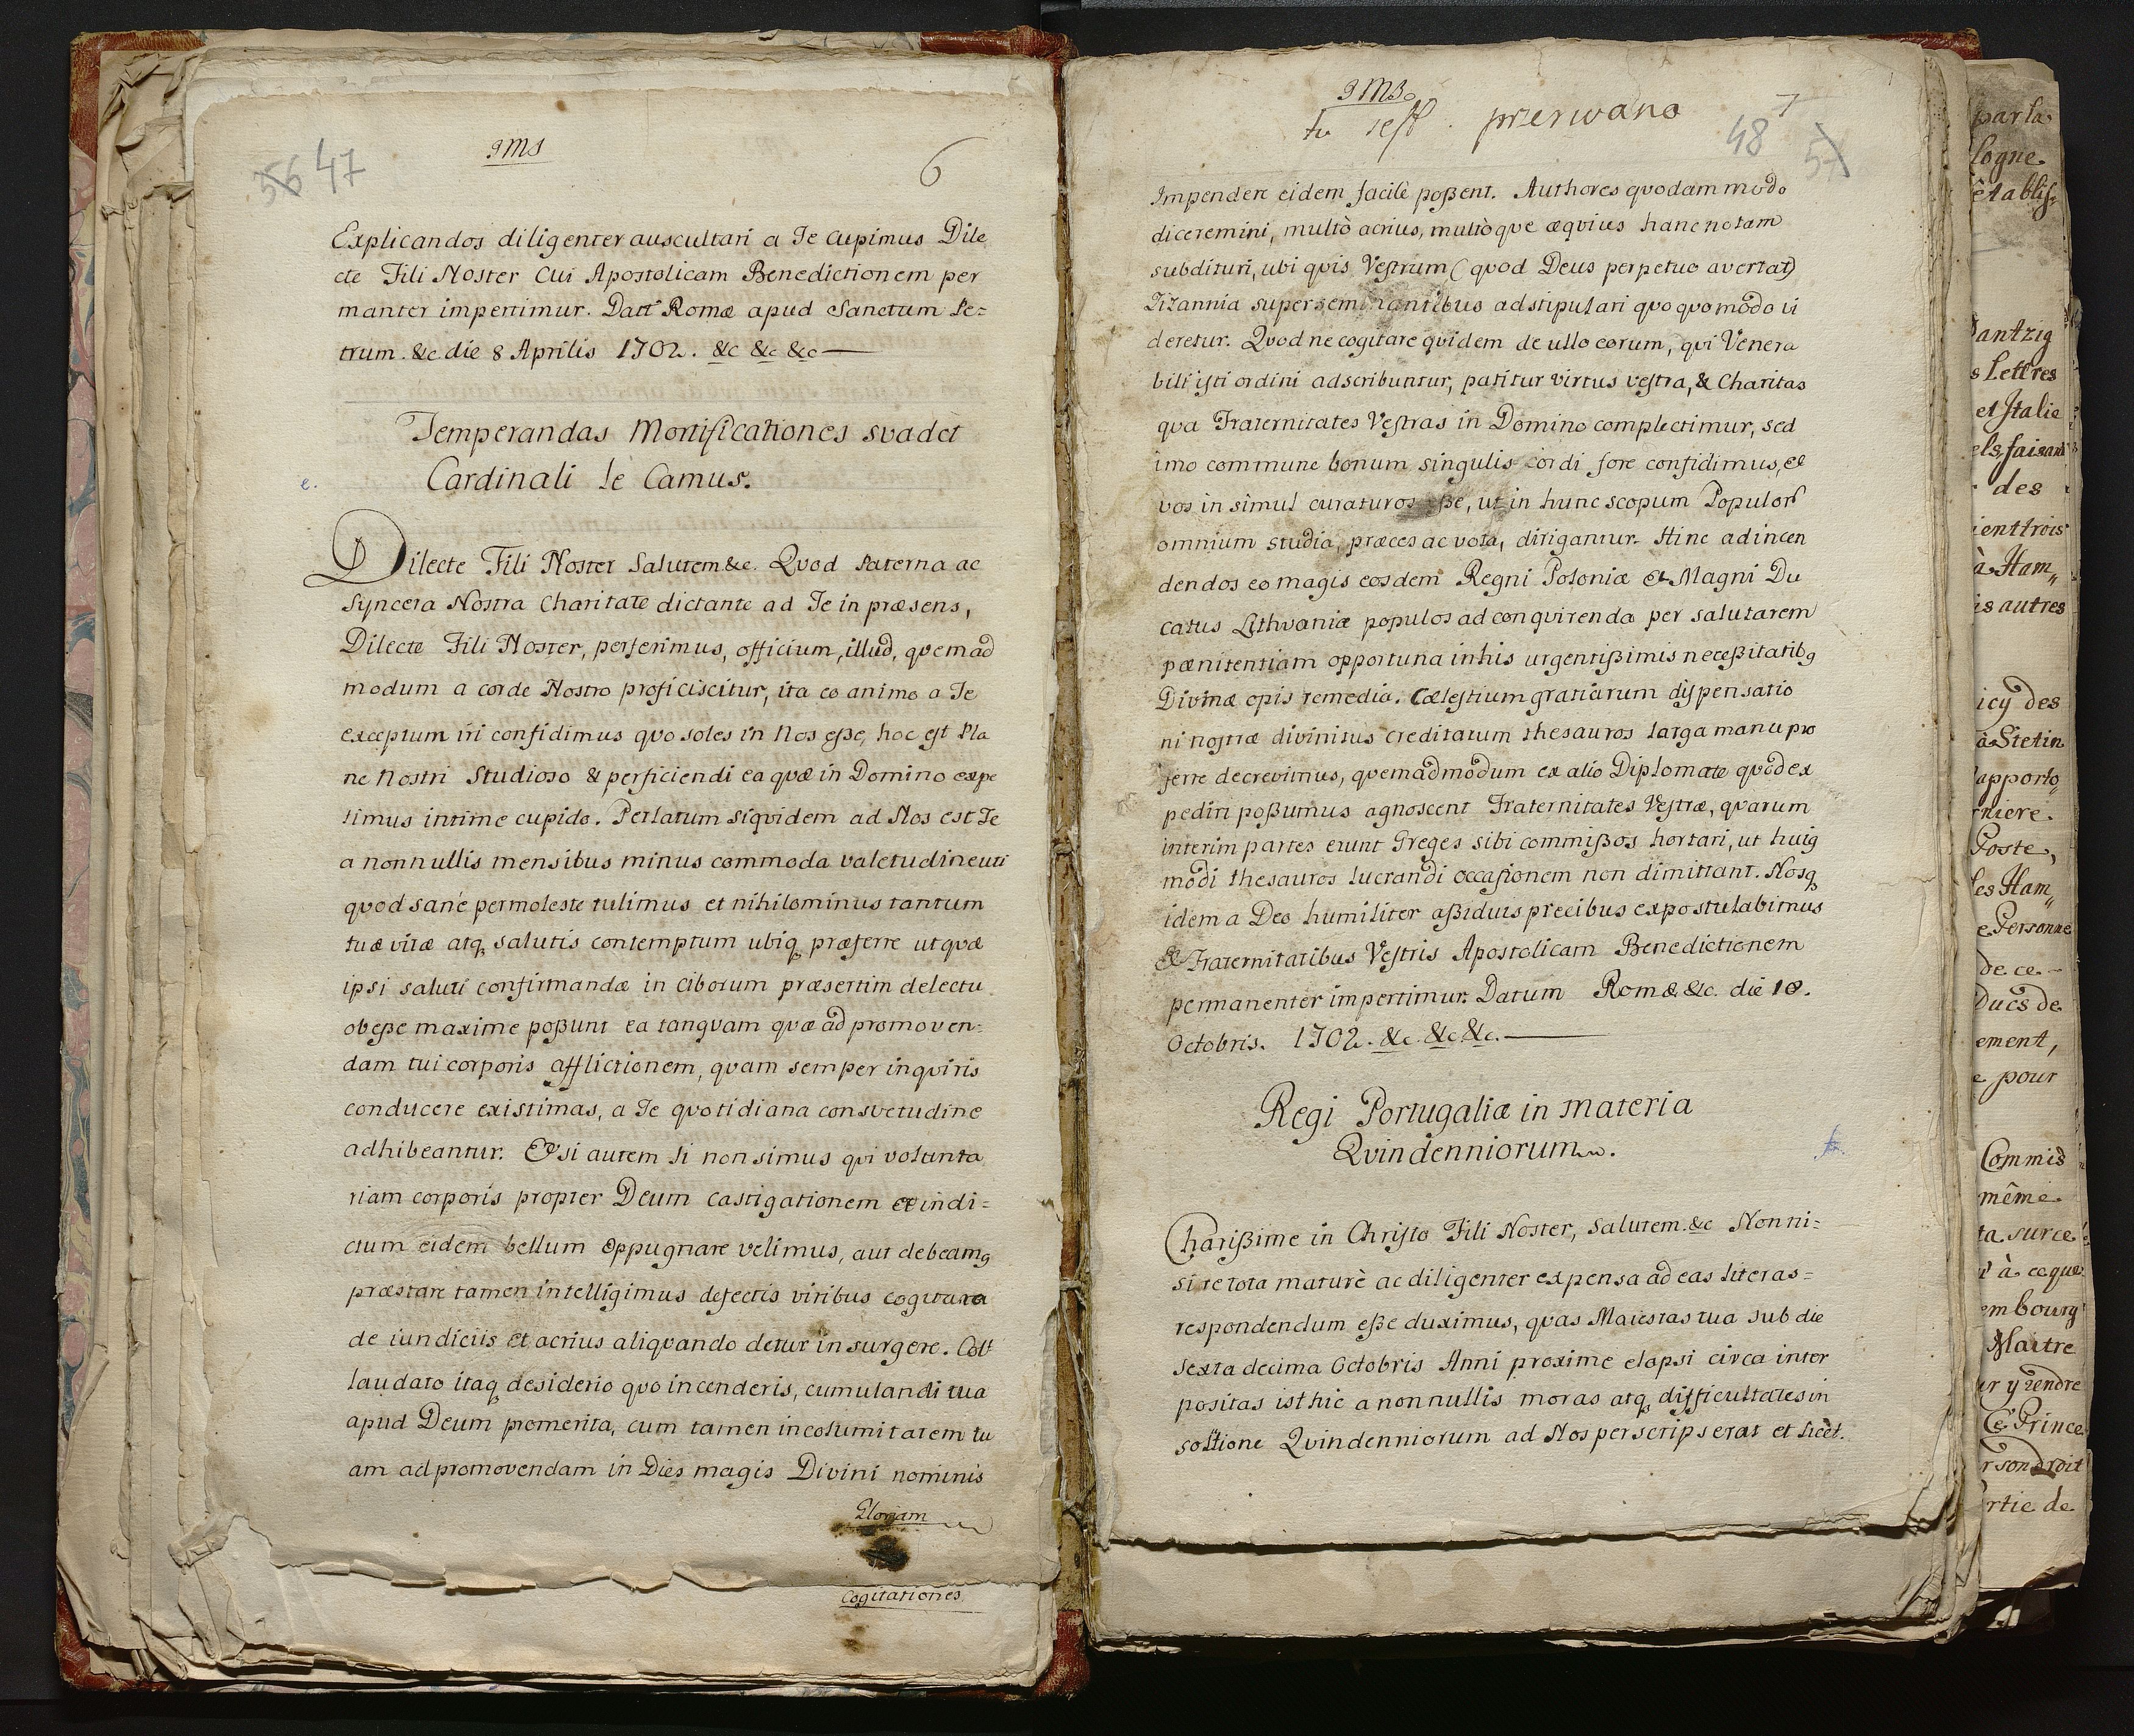 56 47
9MS
6
Explicandos diligenter auscultari a Te cupimus Dile
cte Fili Noster cui Apostolicam Benedictionem per
manter impertimur. Datt Romæ apud Sanctum Pe=
trum. &c die 8 Aprilis 1702. &c &c &c
Temperandas Mortificationes svadet
e. Cardinali le Camus.
Dilecte Fili Noster Salutem &c. Quod Paterna ac
Syncera Nostra Charitate dictante ad Te in præsens,
Dilecte Fili Noster, perferimus, officium, illud, quemad
modum a corde Nostro proficiscitur, ita eo animo a Te
exceptum iri confidimus quo soles in Nos eße, hoc est Pla
ne Nostri Studioso & perficiendi ea quæ in Domino expe
timus intime cupido. Perlatum siquidem ad Nos est Te
a nonnullis mensibus minus commoda valetudine uti
quod sane permoleste tulimus et nihilominus tantum
tuæ vitæ atq salutis contemptum ubiq præferre ut quæ
ipsi saluti confirmandæ in ciborum præsertim delectu
obeße maxime poßunt ea tanquam quæ ad promoven=
dam tui corporis afflictionem, quam semper inquiris
conducere existimas, a Te quotidiana consvetudine
adhibeantur. Et si autem Ii non simus qui volunta
riam corporis propter Deum castigationem et indi=
ctum eidem bellum oppugnare velimus, aut debeamq
præstare tamen intelligimus defectis viribus cogitura
de iundiciis et acrius aliquando detur insurgere. Col
laudato itaq desiderio quo incenderis, cumulandi tua
apud Deum promerita, cum tamen incolumitatem tu
am ad promovendam in Dies magis Divini nominis
Gloriam
Cogitationes
9MS.
tu jest. przerwano
48 7 57
Impendere eidem facile poßent. Authores quodam modo
diceremini, multò acrius, multòque æquius hanc notam
subdituri, ubi quis Vestrum (quod Deus perpetuo avertat)
Zizannia superseminantibus adstipulari quoquomodo vi
deretur. Quod ne cogitare quidem de ullo eorum, qui Venera
bili isti ordini adscribuntur, patitur virtus vestra, & Charitas
qua Fraternitates Vestras in Domino complectimur, sed
imo commune bonum singulis cordi fore confidimus, et
vos in simul curaturos eße, ut in hunc scopum Populor
omnium studia, præces ac vota, dirigantur. Hinc ad incen
dendos eo magis eosdem Regni Poloniæ et Magni Du
catus Lithvaniæ populos ad conquirenda per salutarem
pœnitentiam opportuna in his urgentißimis neceßitatibq
Divinæ opis remedia. Cælestium gratiarum dispensatio
ni nostræ divinitus creditarum thesauros larga manu pro
ferre decrevimus, quemadmodum ex alio Diplomate quod ex
pediri poßumus agnoscent Fraternitates Vestræ, quarum
interim partes erunt Greges sibi commißos hortari, ut huiq
modi thesauros lucrandi occasionem non dimittant. Nosq
idem a Deo humiliter aßiduis precibus expostulabimus
& Fraternitatibus Vestris Apostolicam Benedictionem
permanenter impertimur. Datum Romæ &c. die 18.
Octobris. 1702. &c &c &c.
Regi Portugaliæ in materia
Qvindenniorum.
Charißime in Christo Fili Noster, Salutem. &c Nonni=
si re tota maturè ac diligenter expensa ad eas literas=
respondendum eße duximus, quas Maiestas tua sub die
sexta decima Octobris Anni proxime elapsi circa inter
positas isthic a nonnullis moras atq difficultates in
soltione Qvindenniorum ad Nos perscripserat et licèt.
par la
logne.
établis=
Dantzig
s Lettres
et Italie
els, faisant
des
ient trois
à Ham,,
is autres
icy des
à Stetin
apporto,,
niere.
Poste,
les Ham,,
e Personne
de ce-
Ducs de
ement,
e pour
Commis
même.
ta sur ce
à ce que
embourg
Maitre
er y rendre
Ce Prince
r son droit
rtie de